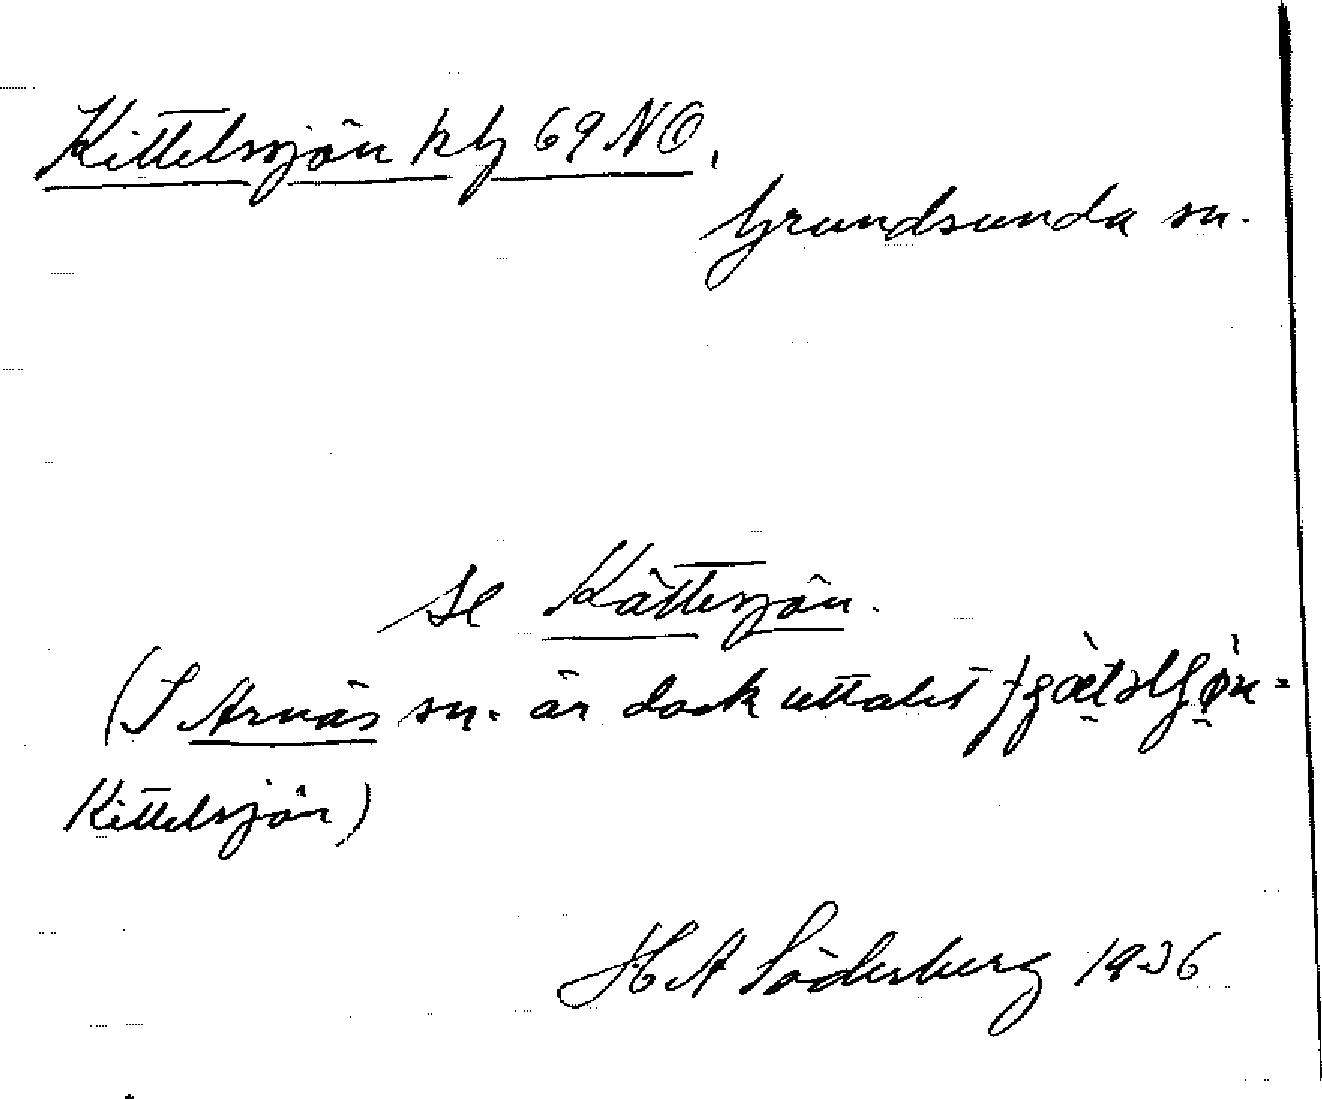 Kittelsjön kbl 69 NO.
Grundsunda sn.
se Kättesjön.
(I Arnäs sn. är dock uttalet
Kittelsjön)
H A Söderberg 1936